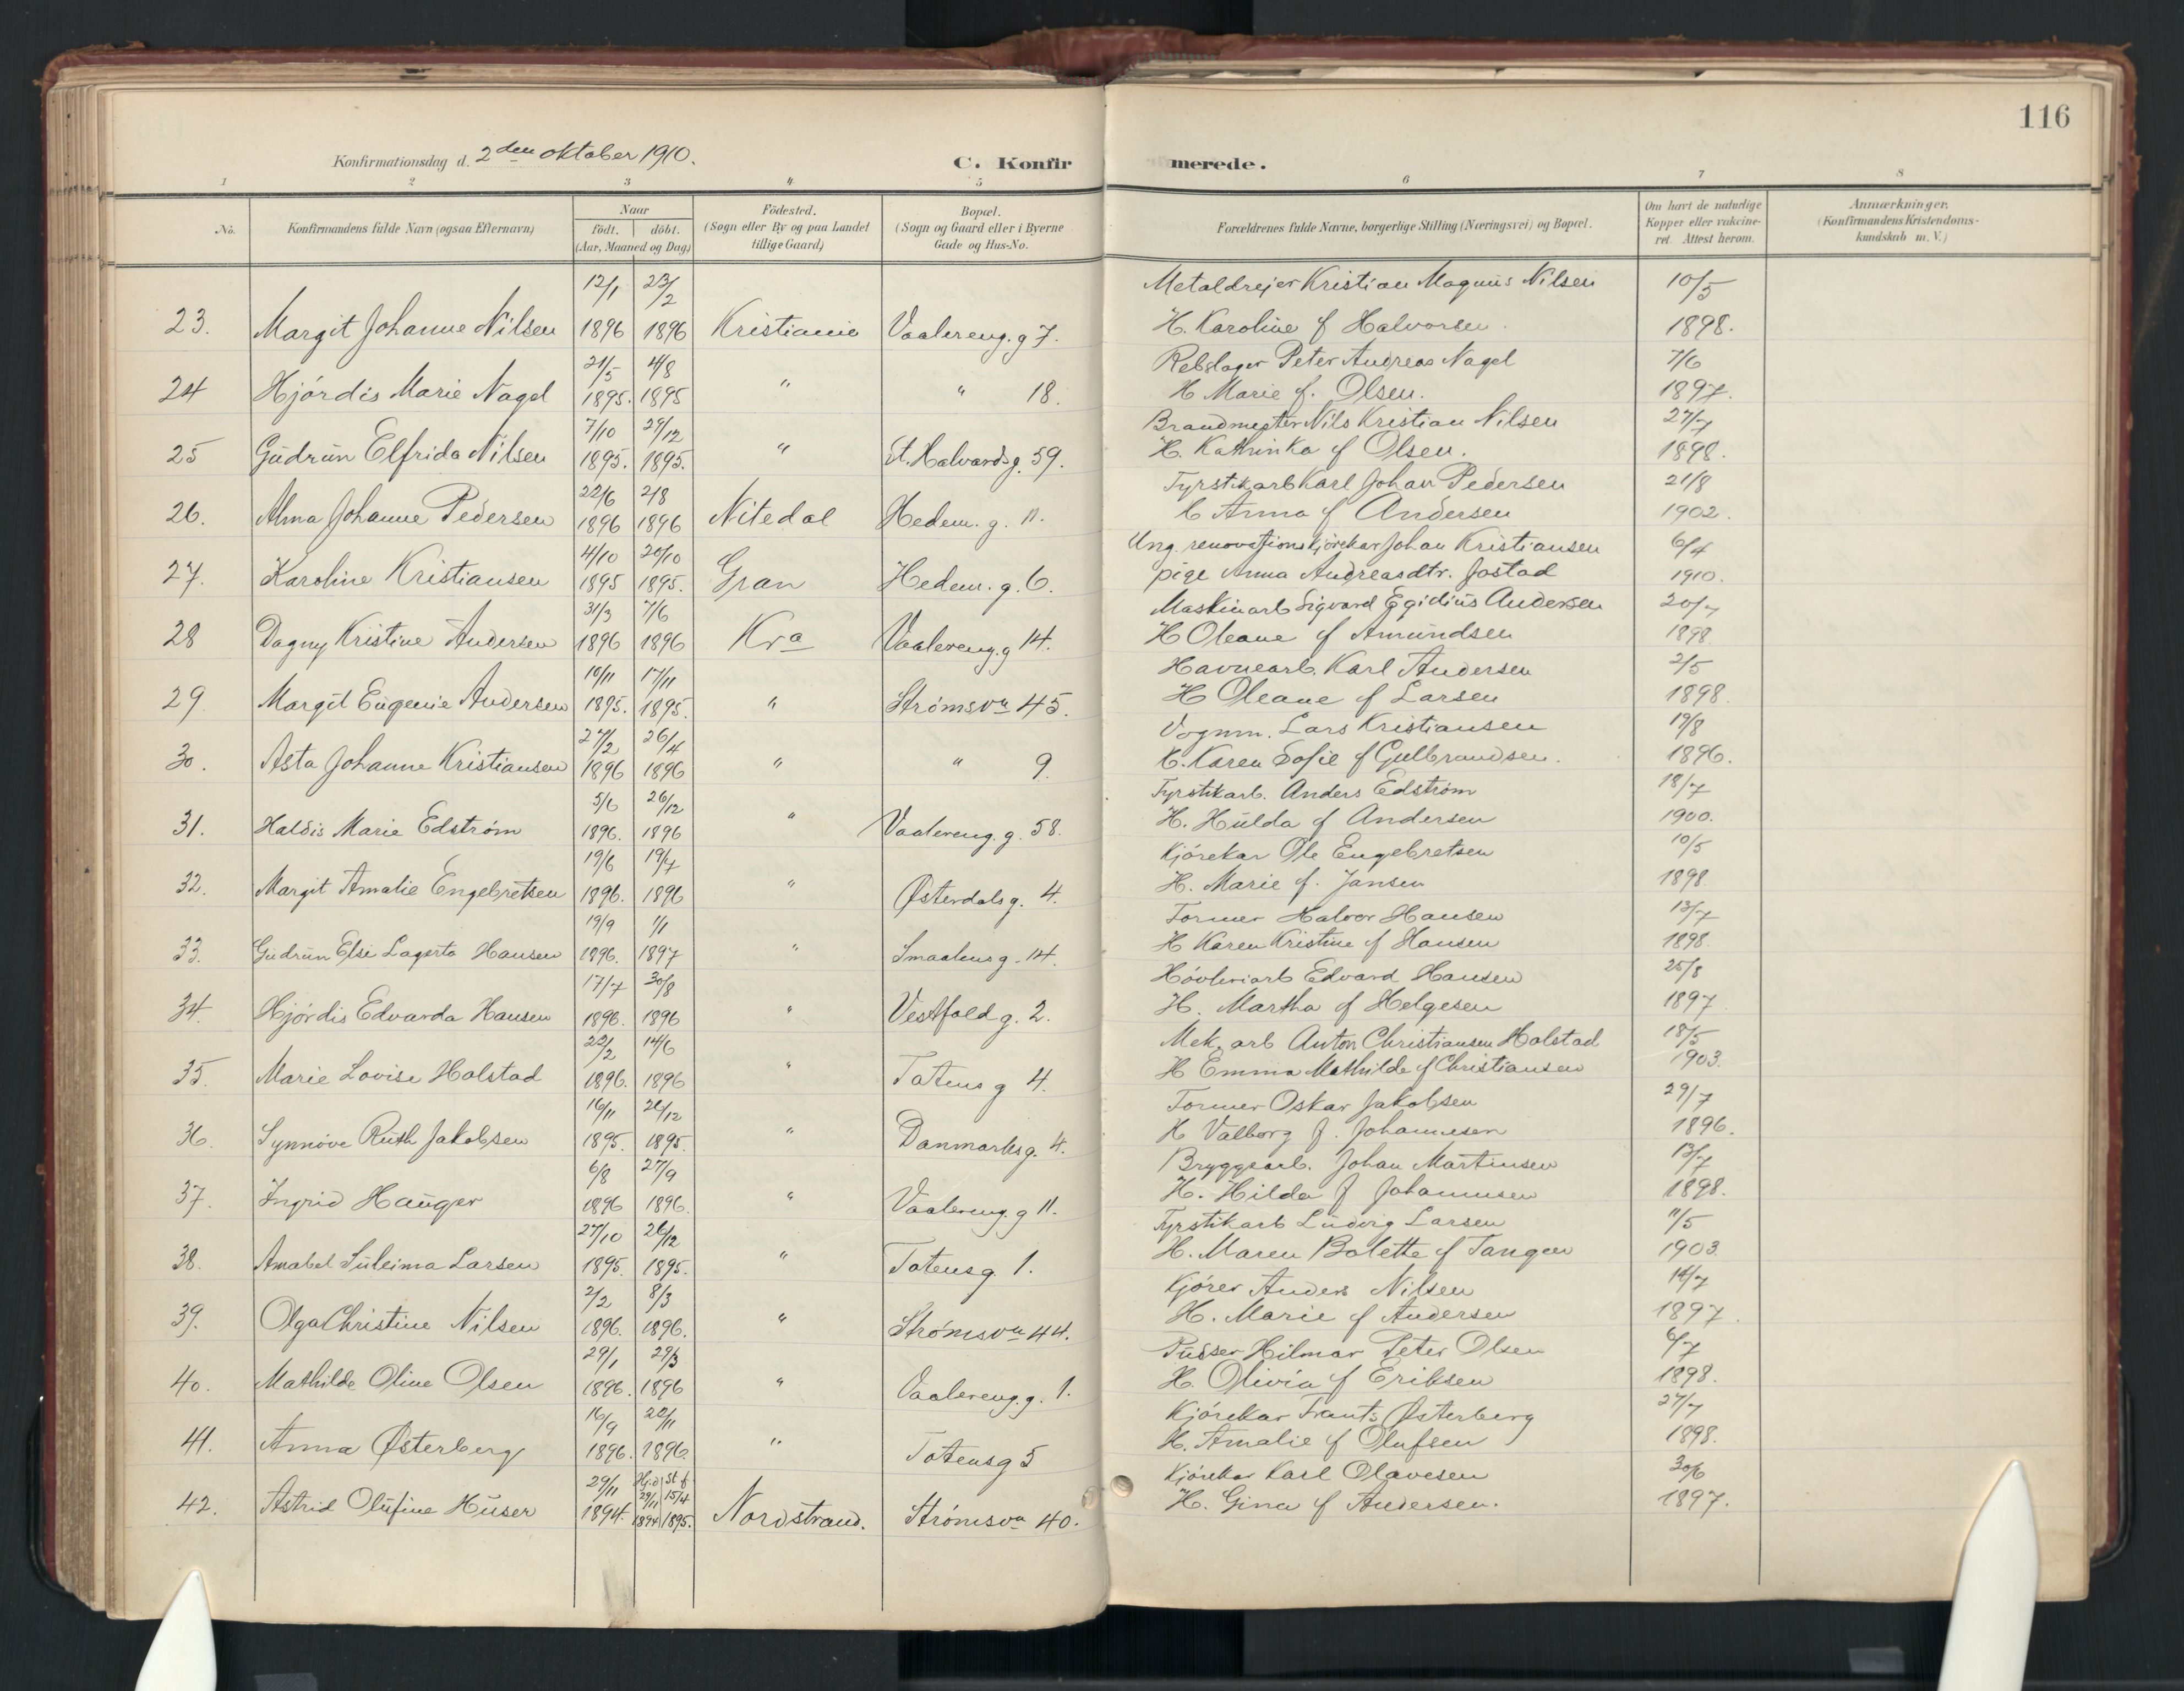 116
Konfirmationsdag d. 2den oktober 1910.
C. Konfirmerede.
1 2 3 4 5 6 7 8
No.
Konfirmandens fulde Navn (ogsaa Efternavn)
Naar
födt. döbt.
(Aar, Maaned og Dag)
Födested.
(Sogn eller By og paa Landet
tillige Gaard)
Bopæl.
(Sogn og Gaard eller i Byerne
Gade og Hus-No.
Forældrenes fulde Navne, borgerlige Stilling (Næringsvei) og Bopæl.
Om havt de naturlige
Kopper eller vakcine-
ret. Attest herom.
Anmærkninger.
(Konfirmandens Kristendoms-
kundskab m. V.)
12/1 23/2 Metaldrejer Kristian Magnus Nilsen 10/5
23. Margit Johanne Nilsen 1896 1896 Kristiania Vaalereng. g 7. H. Karoline f Halvorsen. 1898.
21/5 4/8 Rebslager Peter Andreas Nagel 7/6
24 Hjördis Marie Nagel 1895. 1895 " " 18. H Marie f. Olsen. 1897.
7/10 29/12 Brandmester Nils Kristian Nilsen 27/7
25 Gudrun Elfrida Nilsen 1895. 1895. " St. Halvardsg. 59. H. Kathinka f Olsen. 1898.
22/6 2/8 Fyrstikarb Karl Johan Pedersen 21/8
26. Alma Johanne Pedersen 1896 1896 Nitedal Hedem. g. 11. H Anna f Andersen 1902.
4/10 20/10 Ung. renovationskjörekar Johan Kristiansen 6/4
27. Karoline Kristiansen 1895 1895. Gran Hedem. g. 6. pige Anna Andreasdtr. Jostad 1910.
31/3 7/6 Maskinarb Sigvard Egidius Andersen 20/7
28 Dagny Kristine Andersen 1896 1896 Kra Vaalereng. g 14. H Oleane f Amundsen 1898
10/11 17/11 Havnearb. Karl Andersen 2/5
29 Margit Eugenie Andersen 1895. 1895. " Strømsvn 45. H Oleane f Larsen 1898.
27/2 26/4 Vognm. Lars Kristiansen 19/8
30. Asta Johanne Kristiansen 1896 1896 " " 9. H. Karen Sofie f Gulbrandsen. 1896.
5/6 26/12 Fyrstikarb. Anders Edström 18/7
31. Haldis Marie Edström 1896. 1896 " Vaalereng. g. 58. H. Hulda f Andersen 1900.
19/6 19/7 Kjörekar Ole Engebretsen 10/5
32. Margit Amalie Engebretsen 1896. 1896 " Østerdalsg. 4. H. Marie f. Jansen 1898.
19/9 1/1 Former Halvor Hansen 13/7
33. Gudrun Else Lagerta Hansen 1896. 1897 " Smaalensg. 14. H Karen Kristine f Hansen 1898.
17/7 30/8 Hövleriarb Edvard Hansen 25/8
34. Hjördis Edvarda Hansen 1896. 1896 " Vestfold g. 2. H. Martha f Helgesen 1897
22/2 14/6 Mek. arb Anton Christiansen Holstad 18/5
35. Marie Lovise Holstad 1896. 1896 " Totens g 4. H Emma Mathilde f Christiansen 1903.
16/11 26/12 Former Oskar Jakobsen 29/7
36. Synnöve Ruth Jakobsen 1895. 1895. " Danmarksg. 4. H Valborg f. Johannesen 1896.
6/8 27/9 Bryggearb. Johan Martinsen 13/7
37. Ingrid Hauger 1896 1896. " Vaalereng. g 11. H. Hilda f Johannesen 1898.
27/10 26/12 Fyrstikarb Ludvig Larsen 11/5
38. Amabel Suleima Larsen 1895. 1895. " Totensg. 1. H. Maren Bolette f Tangen 1903
2/2 8/3 Kjörer Anders Nilsen 14/7
39. Olga Christine Nilsen 1896. 1896. " Strømsvn 44. H. Marie f Andersen 1897.
29/1 29/3 Pudser Hilmar Peter Olsen 6/7
40. Mathilde Oline Olsen 1896. 1896 " Vaalereng. g. 1. H. Olivia f Eriksen 1898.
16/9 22/11 Kjörekar Frants Østerberg 27/7
41. Anna Østerberg 1896. 1896. " Totensg 5 H. Amalie f Olufsen 1898.
29/11 Hj.d 29/11 St. f 15/4 Kjörekar Karl Olavesen 30/6
42. Astrid Olufine Huser 1894. 1894 1895. Nordstrand. Strømsvn 40. H. Gina f Andersen. 1897.